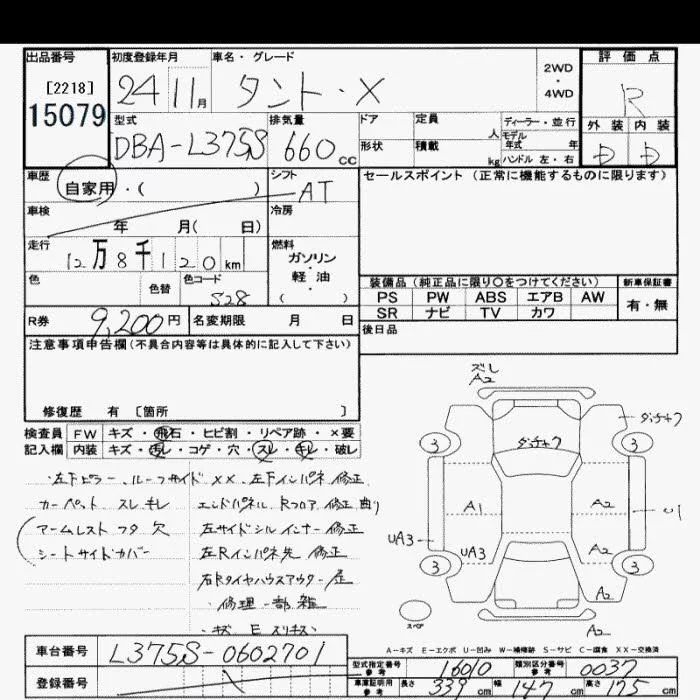 出品番号 初度登録年月 車名・グレード 2WD・4WD 評価点
[2218]
15079
24 11月 タント・X R
型式 排気量 ドア 定員 人 ディーラー・並行
モデル年式 年
外装 内装
DBA-L375S 660cc 形状 積載 kg ハンドル 左・右 D D
車歴 自家用・( ) シフト AT セールスポイント(正常に機能するものに限ります)
車検 年 月( 日) 冷房
走行 12万8千120km 燃料 ガソリン・軽油 ( )
色 色替 色コード S28
装備品(純正品に限り○をつけてください) 新車保証書
PS PW ABS エアB AW 有・無
SR ナビ TV カワ
R券 9,200円 名変期限 月 日 後日品
注意事項申告欄(不具合内容等は具体的に記入して下さい)
修復歴 有 〔箇所 〕
検査員 FW キズ・飛石・ヒビ割・リペア跡・×要
記入欄 内装 キズ・汚レ・コゲ・穴・スレ・キレ・破レ
・左下ピラー、ルーフサイド XX、左下インパネ 修正
カーペット スレ キレ エンドパネル、Rフロア 修正 曲り
アームレスト フタ 欠 左サイドシル インナー 修正
シートサイドカバー 左Rインパネ先 修正
右Rタイヤハウスアウター 歪
・修理一部雑
ズレ
A2
ダ・チャク
3 3
ダ・チャク
A1 A2
UA3 UA3 A2 U1
3 3
A2
スペア A2
A-キズ E-エクボ U-凹み W-補修跡 S-サビ C-腐食 XX-交換済
車台番号 L375S-0602701
登録番号
型式指定番号 参考 16010 類別区分番号 参考 0037
車庫証明用 参考 長さ 339cm 幅 147cm 高さ 175cm